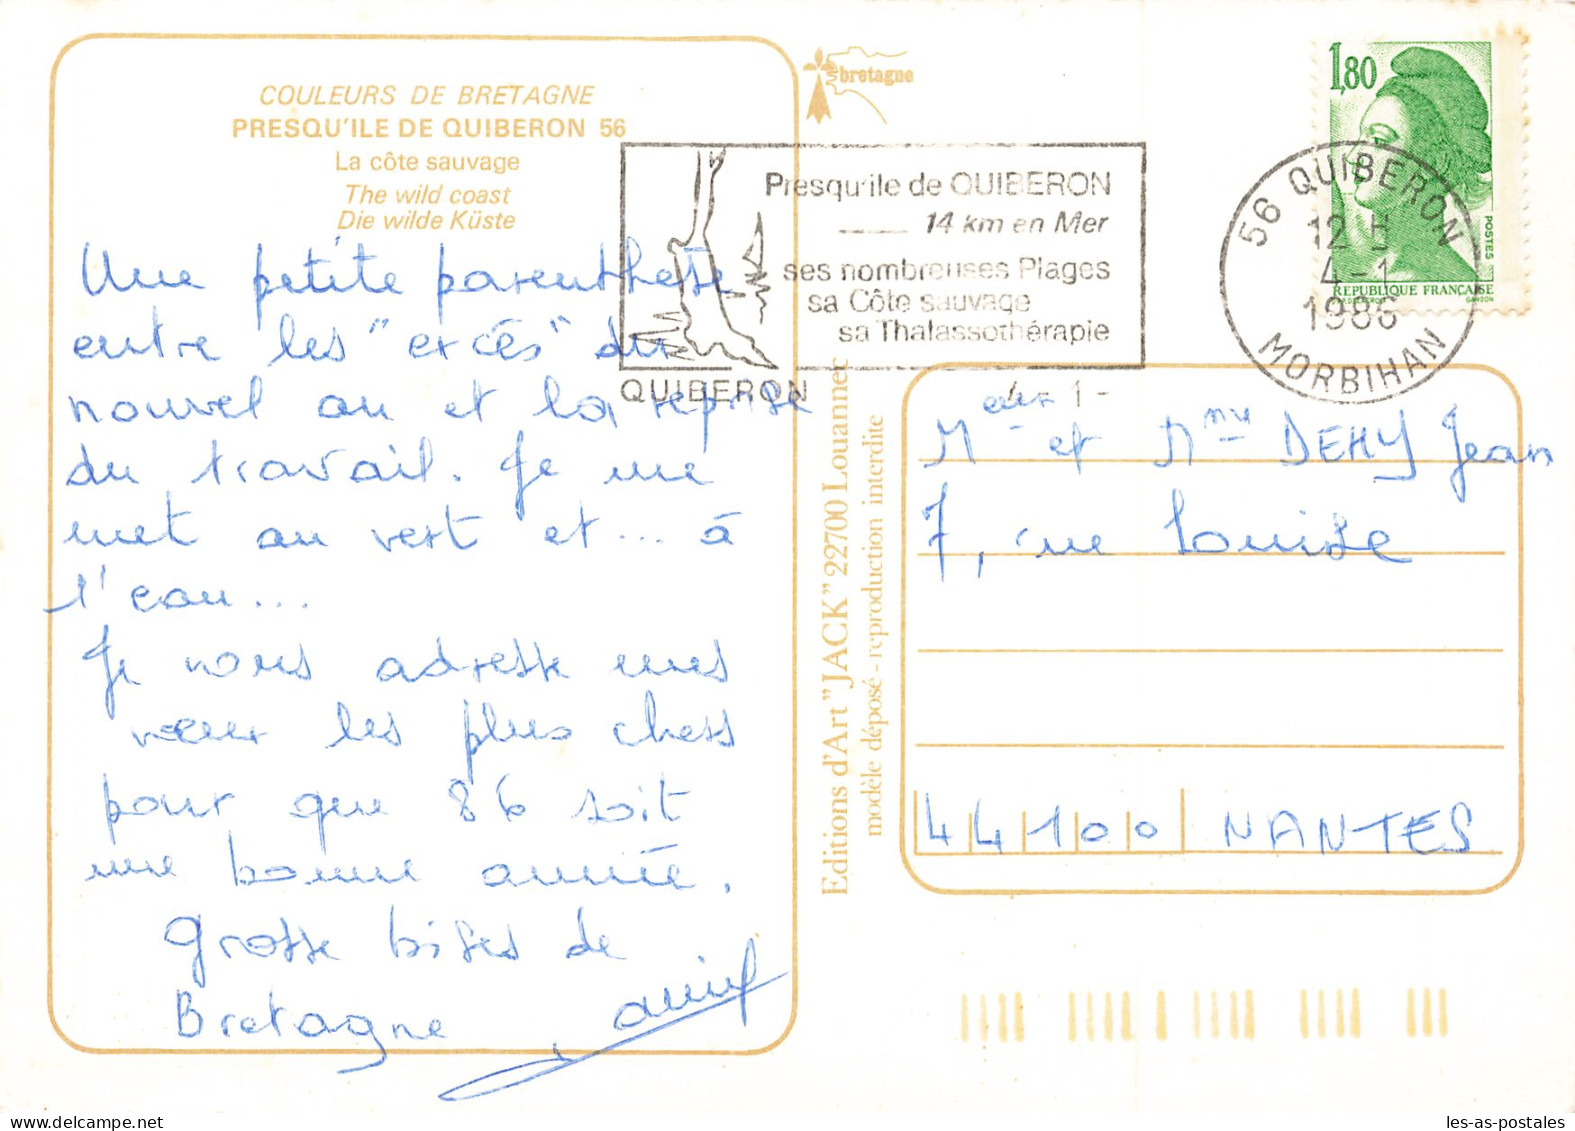 COULEURS DE BRETAGNE
PRESQU'ILE DE QUIBERON 56
La côte sauvage
The wild coast
Die wilde Küste
Une petite parenthèse
entre les "excès" du
nouvel an et la reprise
du travail. Je me
met au vert et ... à
l'eau...
Je vous adresse mes
vœux les plus chers
pour que 86 soit
une bonne année.
Grosse bises de
Bretagne
bretagne
Presqu'ile de QUIBERON
14 km en Mer
ses nombreuses Plages
sa Côte sauvage
sa Thalassothérapie
QUIBERON
Editions d'Art "JACK" 22700 Louannec
modèle déposé - reproduction interdite
1,80
POSTES
REPUBLIQUE FRANÇAISE
GANDON
56 QUIBERON
12 H
4-1
1986
MORBIHAN
4- 1-
M et Mme DEHY Jean
7, rue Louise
44100 NANTES
les-as-postales